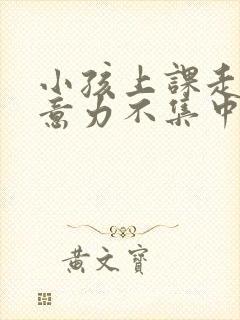 小孩上課走
意力不集中
黄文寶